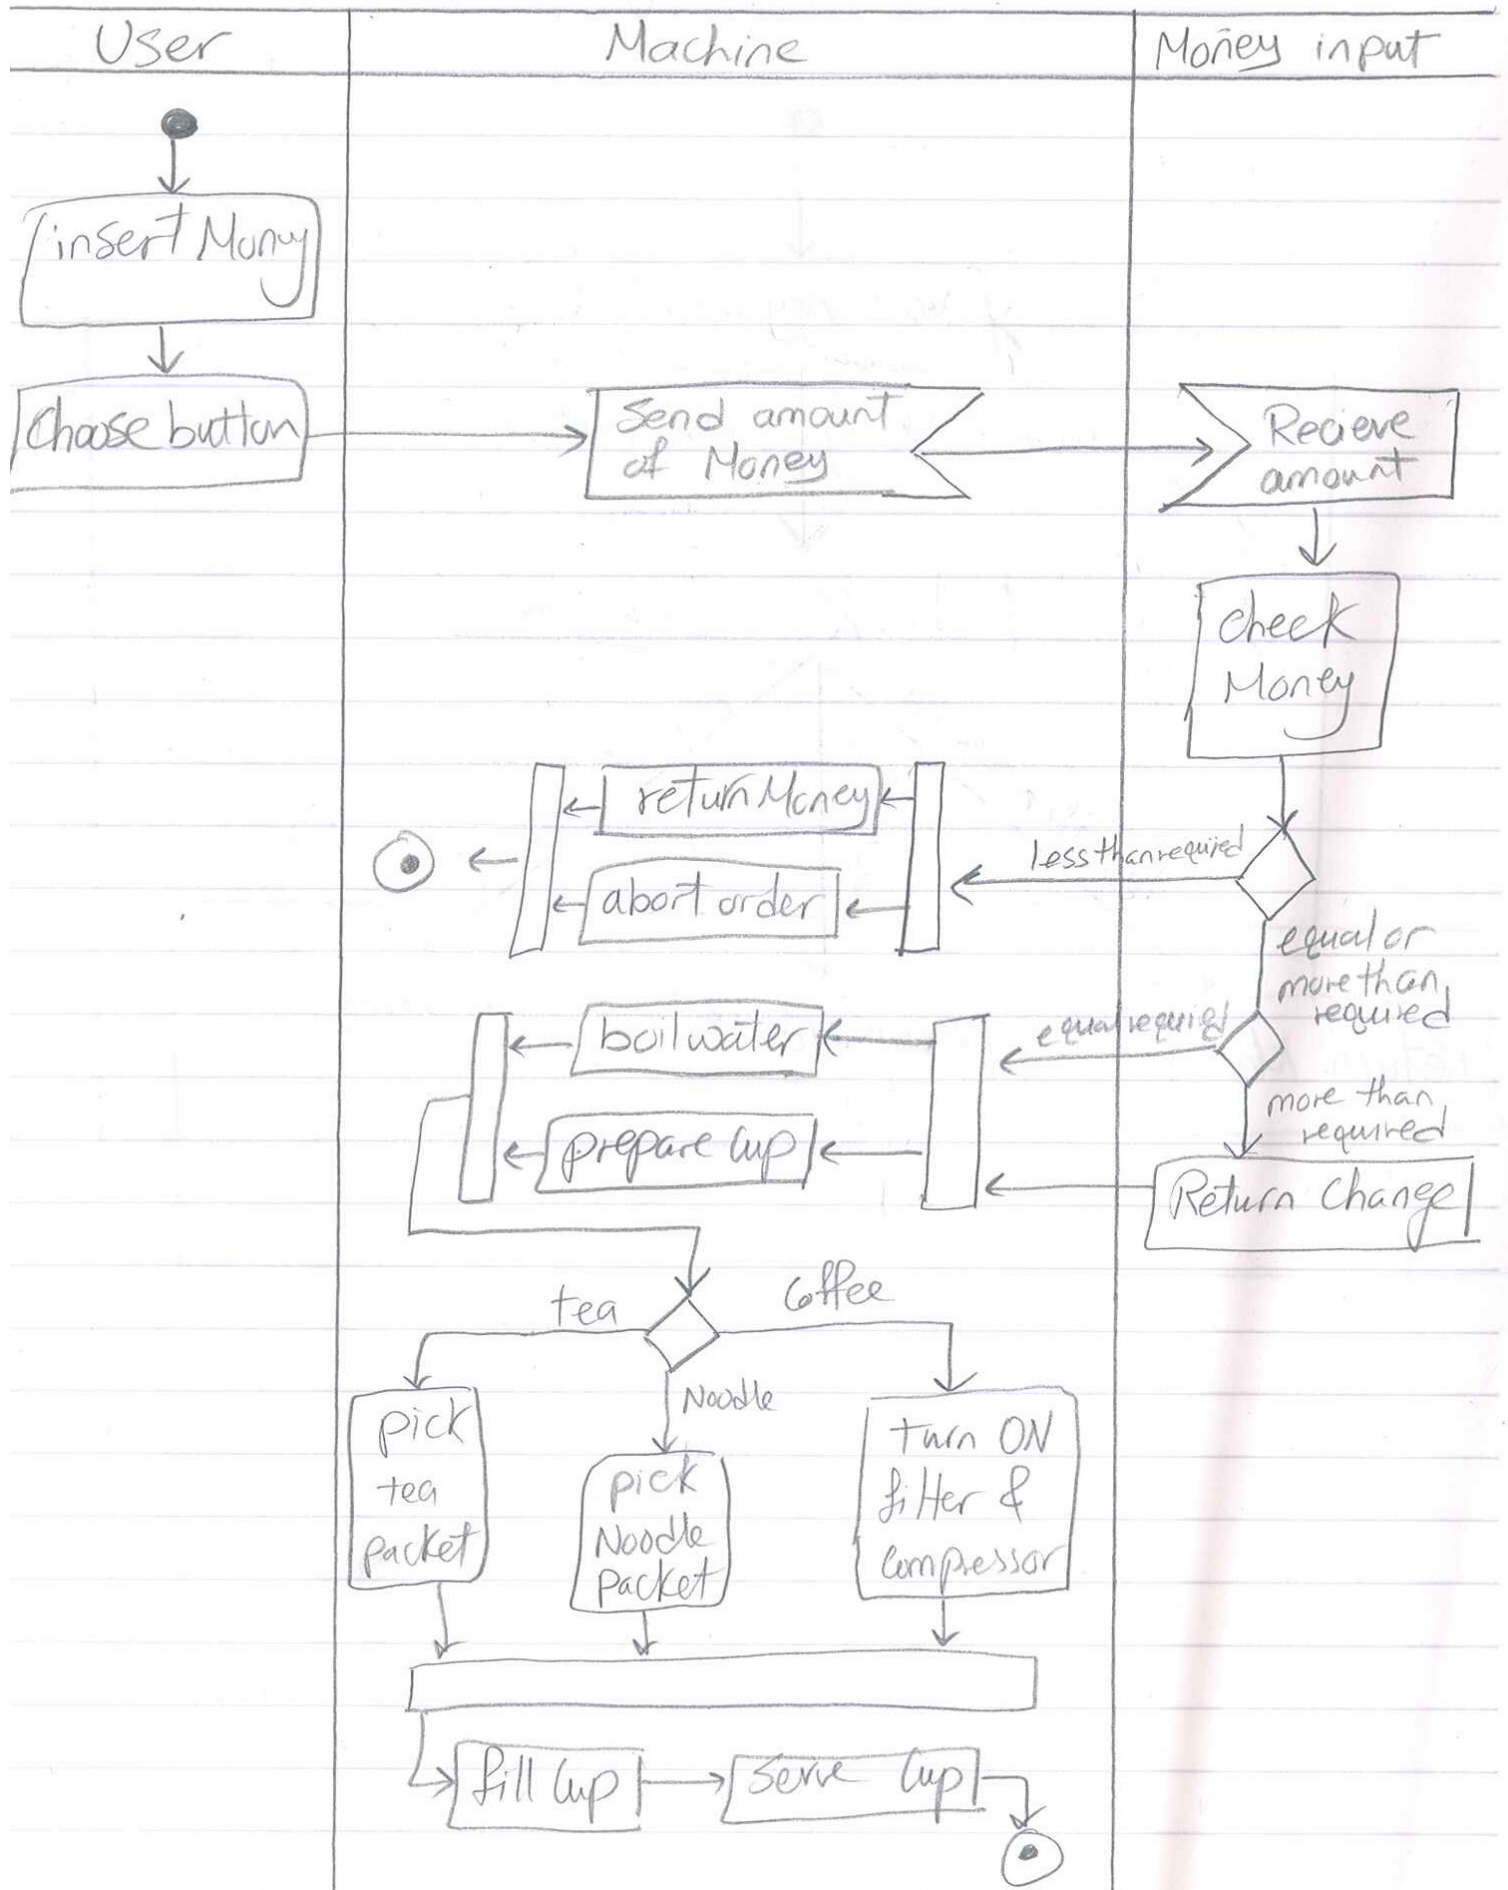 User
Machine
Money input
insert Money
Choose button
Send amount
of Money
Recieve
amount
check
Money
return Money
less than required
abort order
equal or
more than
required
boil water
equal required
more than
required
prepare Cup
Return Change
tea
Coffee
Noodle
pick
tea
packet
pick
Noodle
Packet
turn ON
filter &
Compressor
fill Cup
Serve Cup